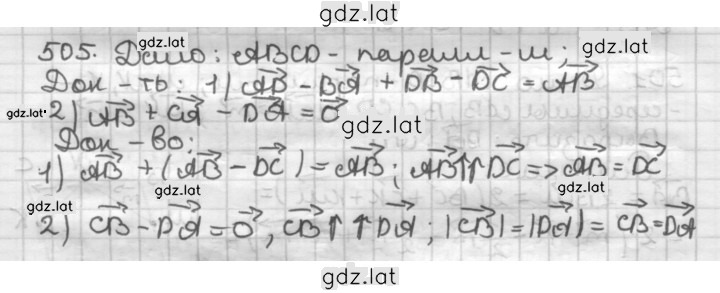 gdz.lat
505. Дано: ABCD - паралл-м;
gdz.lat
gdz.lat
Док-ть: 1) AB - BA + DB - DC = AB
gdz.lat 2) AB + CA - DA = 0
gdz.lat
Док-во:
1) AB + (AB - DC) = AB; AB↑↑DC => AB = DC
gdz.lat
gdz.lat
2) CB - DA = 0, CB↑↑DA; |CB| = |DA| = CB = DA
gdz.lat